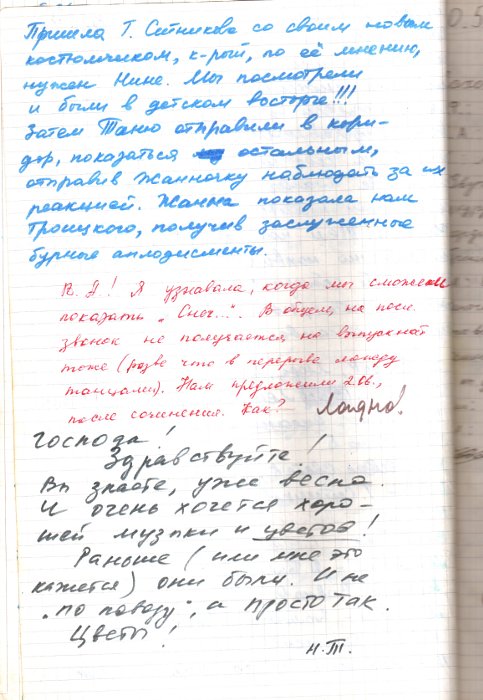 Пришла Т. Ситникова со своим новым
костюмчиком, к-рый, по её мнению,
нужен Нине. Мы посмотрели
и были в детском восторге!!!
Затем Таню отправили в кори-
дор, показаться остальным,
отправив Жанночку наблюдать за их
реакцией. Жанна показала нам
Троицкого, получив заслуженные
бурные аплодисменты.
Я узнавала, когда мы сможем
показать „Снег...“. В общем, на посл.
звонок не получается, на выпускной
тоже (разве что в перерыве между
танцами). Нам предложили 2.06.,
после сочинения. Как?— Ладно!
Господа!
Здравствуйте!
Вы знаете, уже весна.
И очень хочется хоро-
шей музыки и цветов!
Раньше (или мне это
кажется) они были. И не
„по поводу“, а просто так.
Цветы!
Н.Т.